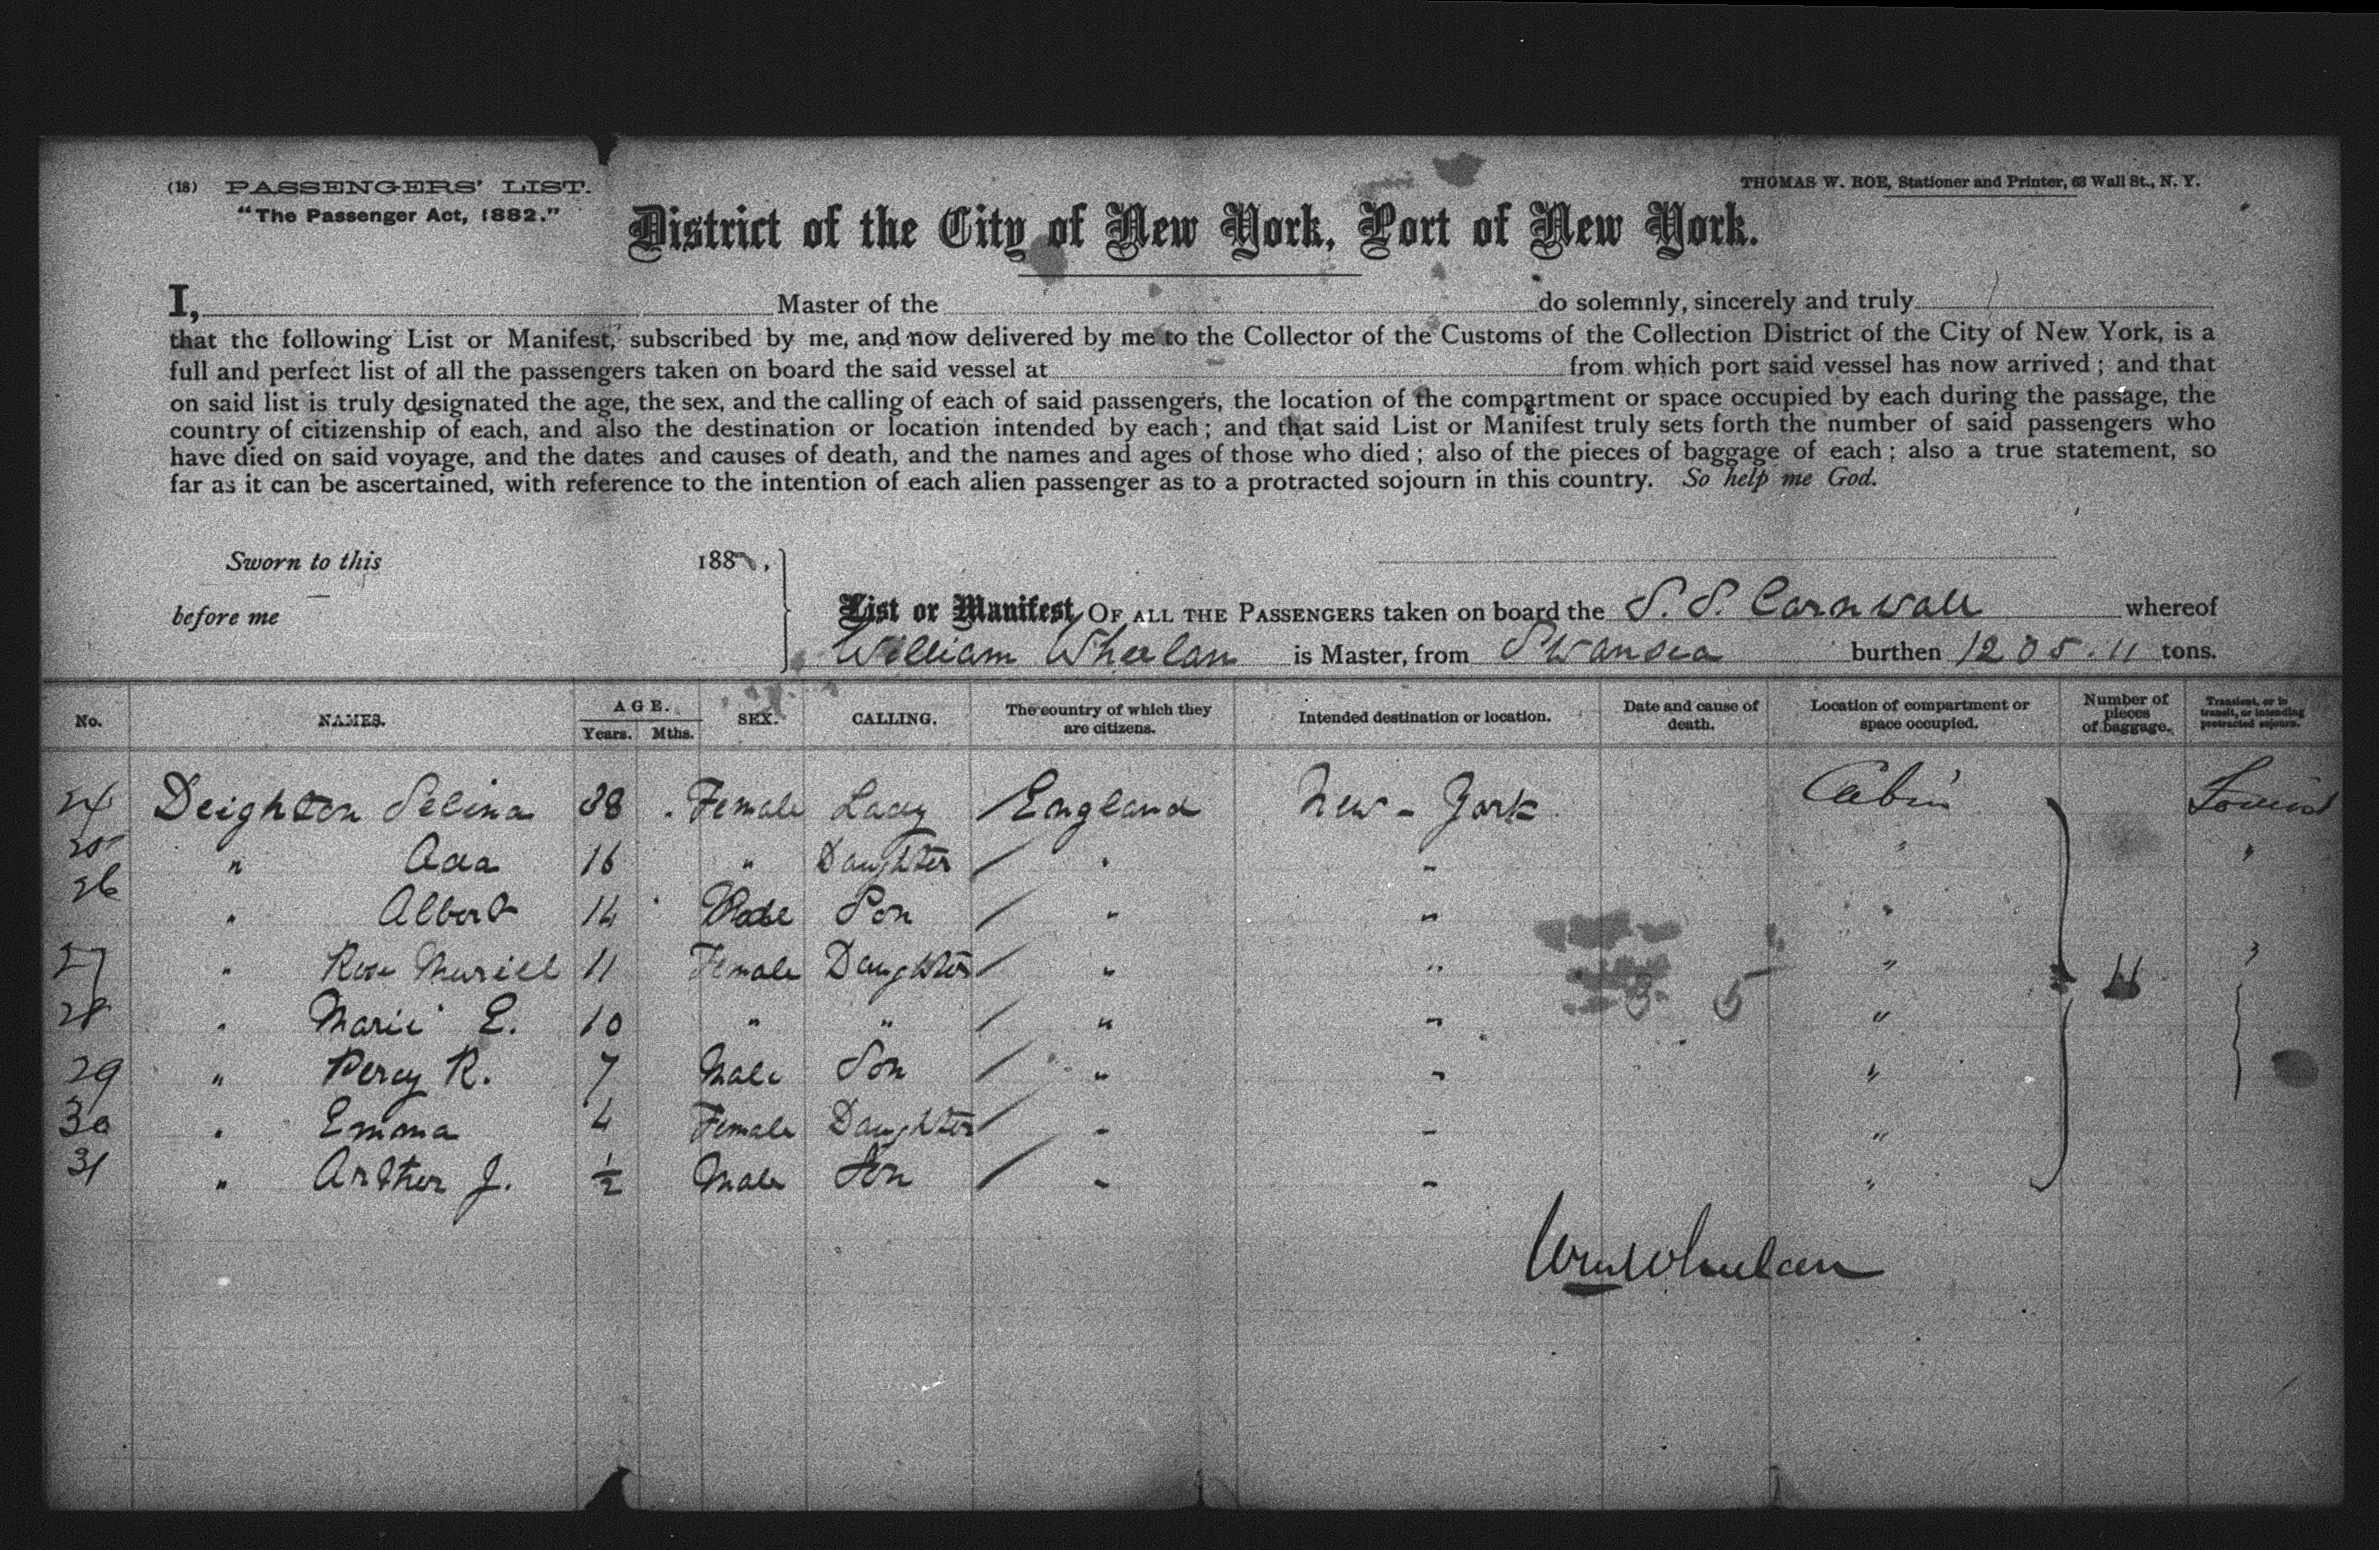 (18) PASSENGERS' LIST.
"The Passenger Act, 1882."
THOMAS W. ROE, Stationer and Printer, 63 Wall St., N. Y.
District of the City of New York, Port of New York.
I, Master of the do solemnly, sincerely and truly
that the following List or Manifest, subscribed by me, and now delivered by me to the Collector of the Customs of the Collection District of the City of New York, is a
full and perfect list of all the passengers taken on board the said vessel at from which port said vessel has now arrived; and that
on said list is truly designated the age, the sex, and the calling of each of said passengers, the location of the compartment or space occupied by each during the passage, the
country of citizenship of each, and also the destination or location intended by each; and that said List or Manifest truly sets forth the number of said passengers who
have died on said voyage, and the dates and causes of death, and the names and ages of those who died; also of the pieces of baggage of each; also a true statement, so
far as it can be ascertained, with reference to the intention of each alien passenger as to a protracted sojourn in this country. So help me God.
Sworn to this 188 ,
before me
List or Manifest OF ALL THE PASSENGERS taken on board the S. S. Cornwall whereof
William Wheelan is Master, from Swansea burthen 1205.11 tons.
No. NAMES. AGE. Years. Mths. SEX. CALLING. The country of which they are citizens. Intended destination or location. Date and cause of death. Location of compartment or space occupied. Number of pieces of baggage. Transient, or in transit, or intending protracted sojourn.
24 Deighton Selina 38 Female Lady England New-York Cabin
25 " Ada 16 " Daughter " " " "
26 " Albert 14 Male Son " " "
27 " Rose Muriell 11 Female Daughter " " " 11 "
28 " Marie E. 10 " " " " "
29 " Percy R. 7 Male Son " " "
30 " Emma 4 Female Daughter " " "
31 " Arther J. 1/2 Male Son " " "
Wm Wheelan